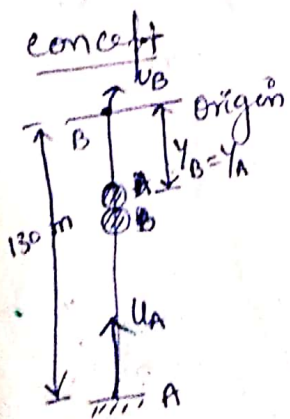 concept
υB
B
Origin
YB=YA
A
B
130 m
UA
A